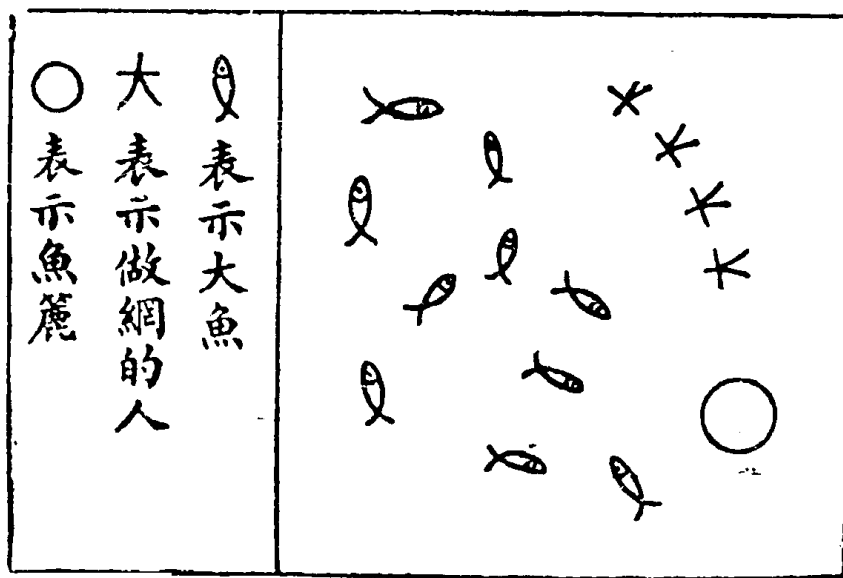 表示大魚
表示做網的人
表示魚簏